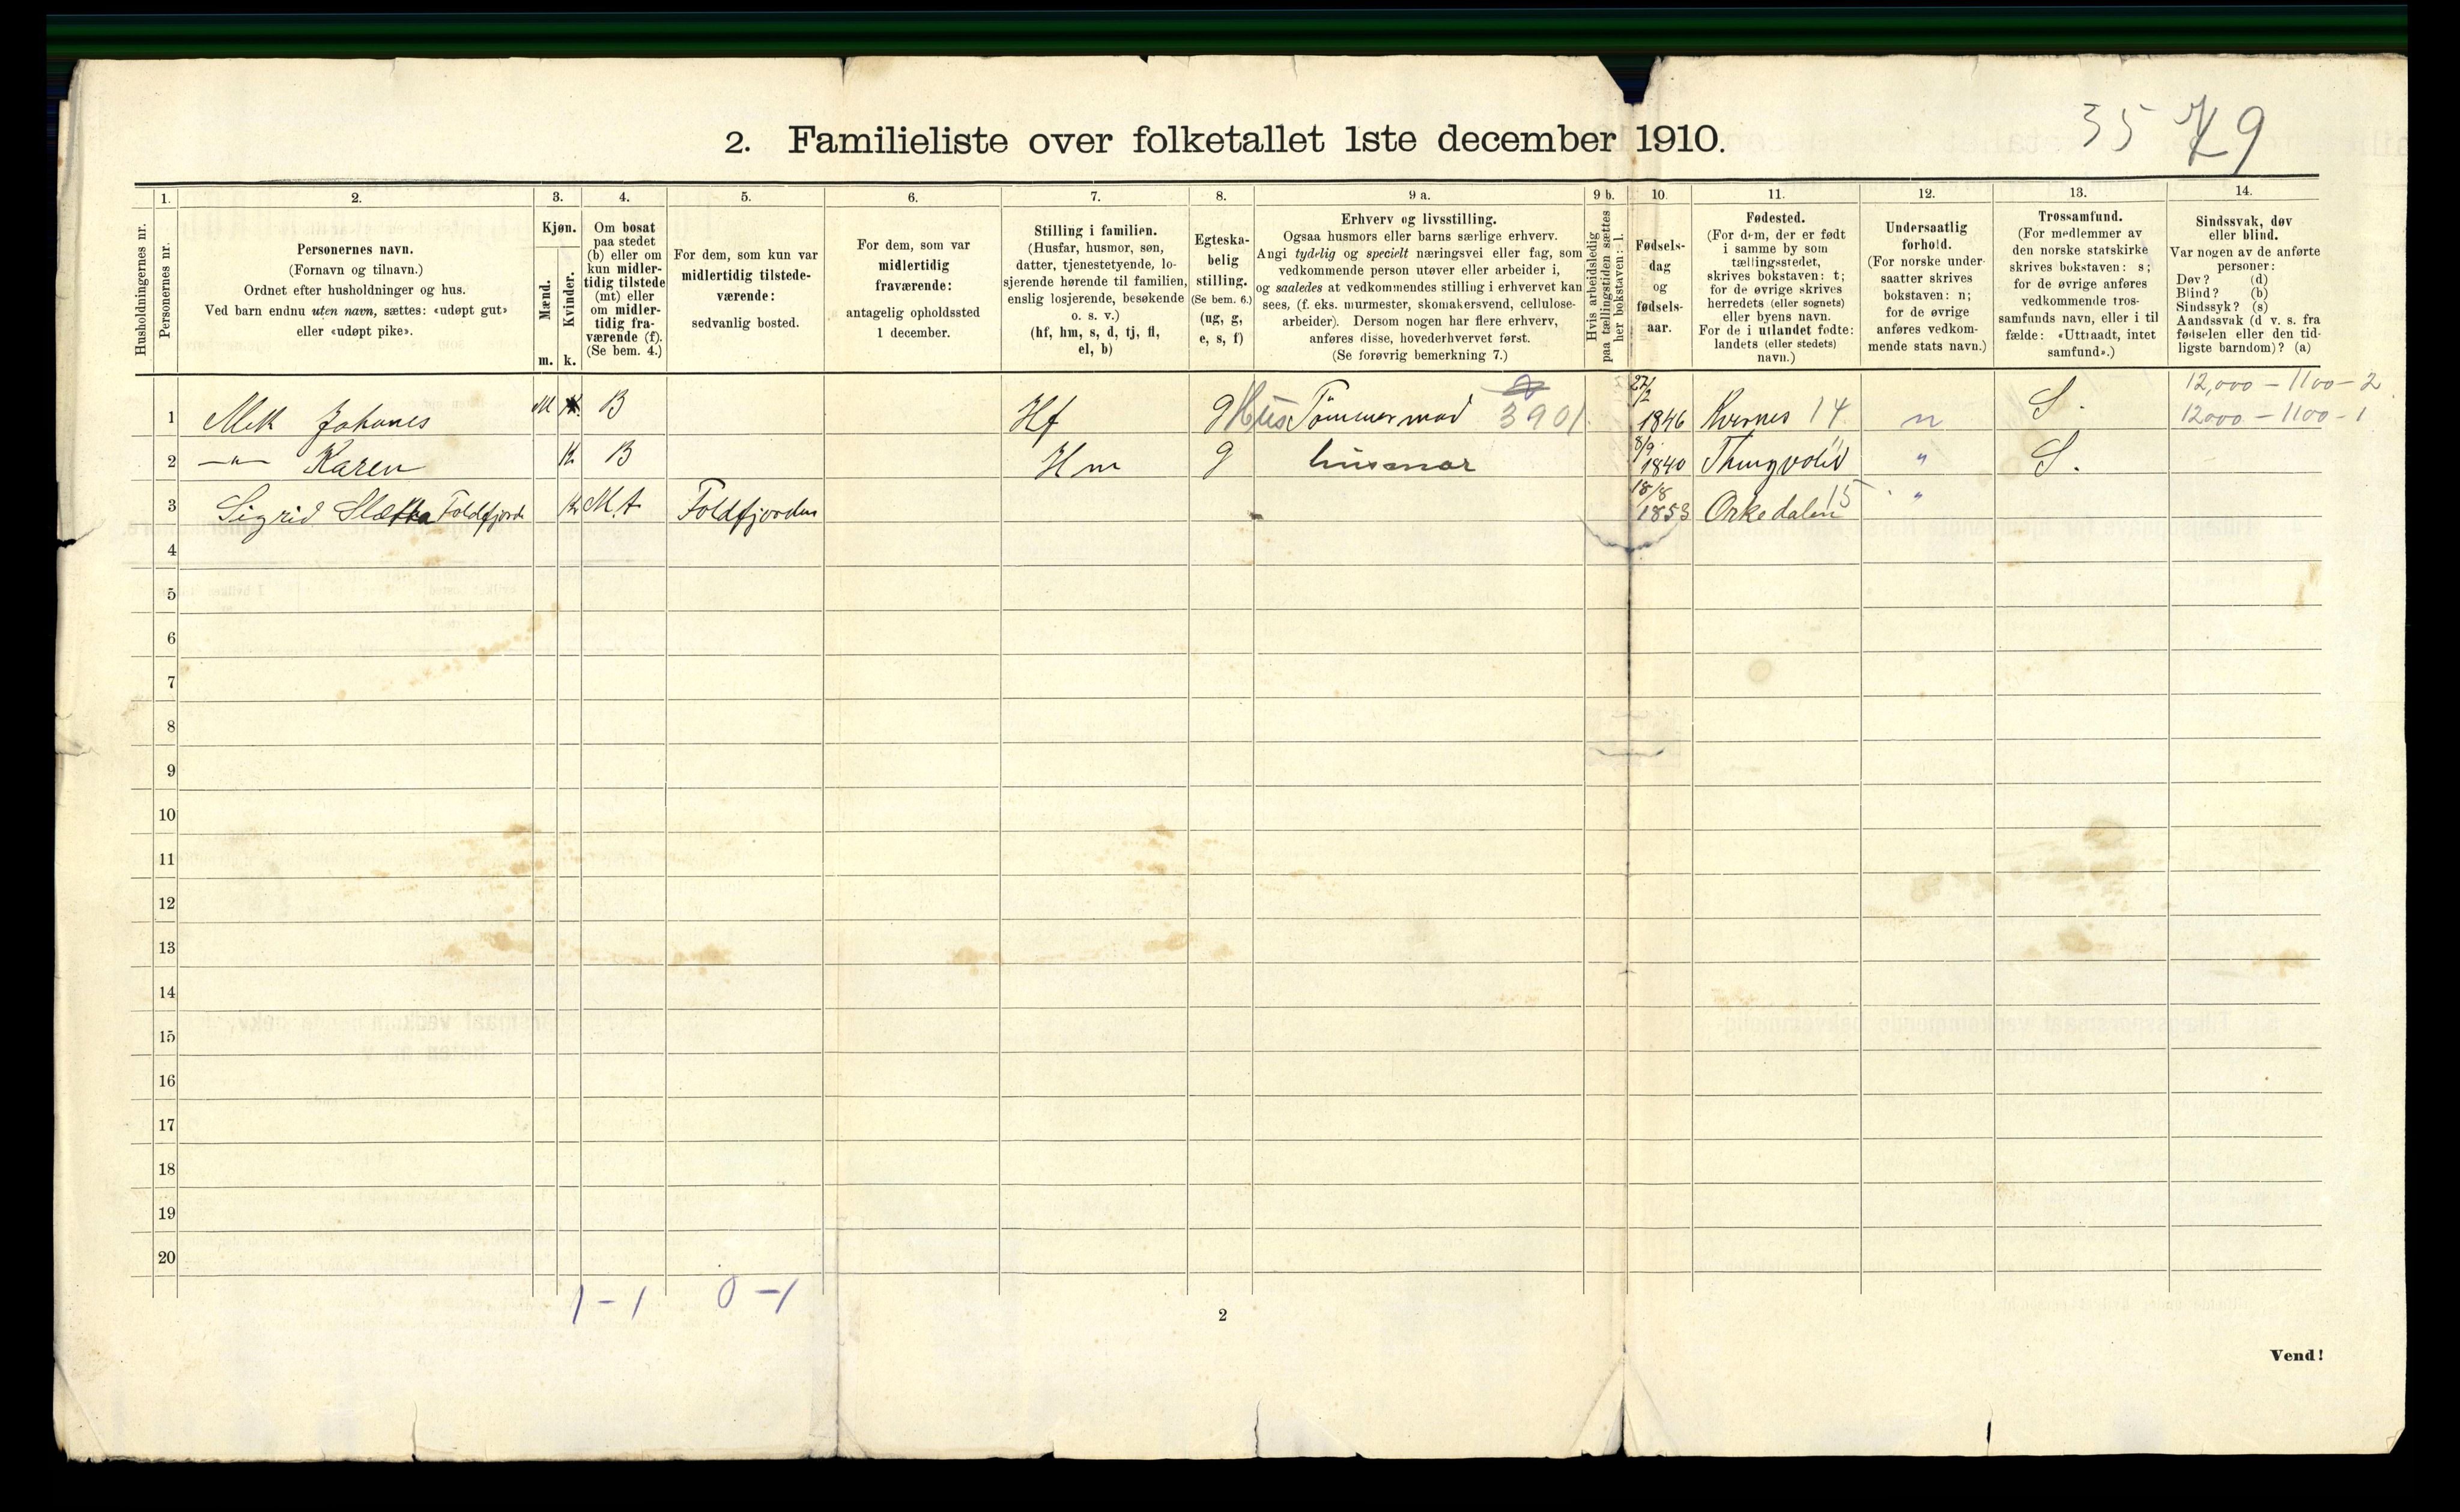 35 79
2. Familieliste over folketallet 1ste december 1910.
Husholdningernes nr.
1.
Personernes nr.
2.
Personernes navn.
(Fornavn og tilnavn.)
Ordnet efter husholdninger og hus.
Ved barn endnu uten navn, sættes: «udøpt gut»
eller «udøpt pike».
3.
Kjøn.
Mænd.
m.
Kvinder.
k.
4.
Om bosat
paa stedet
(b) eller om
kun midler-
tidig tilstede
(mt) eller
om midler-
tidig fra-
værende (f).
(Se bem. 4.)
5.
For dem, som kun var
midlertidig tilstede-
værende:
sedvanlig bosted.
6.
For dem, som var
midlertidig
fraværende:
antagelig opholdssted
1 december.
7.
Stilling i familien.
(Husfar, husmor, søn,
datter, tjenestetyende, lo-
sjerende hørende til familien,
enslig losjerende, besøkende
o. s. v.)
(hf, hm, s, d, tj, fl,
el, b)
8.
Egteska-
belig
stilling.
(Se bem. 6.)
(ug, g,
e, s, f)
9 a.
Erhverv og livsstilling.
Ogsaa husmors eller barns særlige erhverv.
Angi tydelig og specielt næringsvei eller fag, som
vedkommende person utøver eller arbeider i,
og saaledes at vedkommendes stilling i erhvervet kan
sees, (f. eks. murmester, skomakersvend, cellulose-
arbeider). Dersom nogen har flere erhverv,
anføres disse, hovederhvervet først.
(Se forøvrig bemerkning 7.)
9 b.
Hvis arbeidsledig
paa tællingstiden sættes
her bokstaven: l.
10.
Fødsels-
dag
og
fødsels-
aar.
11.
Fødested.
(For dem, der er født
i samme by som
tællingsstedet,
skrives bokstaven: t;
for de øvrige skrives
herredets (eller sognets)
eller byens navn.
For de i utlandet fødte:
landets (eller stedets)
navn.)
12.
Undersaatlig
forhold.
(For norske under-
saatter skrives
bokstaven: n;
for de øvrige
anføres vedkom-
mende stats navn.)
13.
Trossamfund.
(For medlemmer av
den norske statskirke
skrives bokstaven: s;
for de øvrige anføres
vedkommende tros-
samfunds navn, eller i til
fælde: «Uttraadt, intet
samfund».)
14.
Sindssvak, døv
eller blind.
Var nogen av de anførte
personer:
Døv? (d)
Blind? (b)
Sindssyk? (s)
Aandssvak (d v. s. fra
fødselen eller den tid-
ligste barndom)? (a)
12,000 – 1100 – 2
1 Mek Johanes M B Hf g Hus Tömmermad 3901 27/2 1846 Kvernes 14 n S. 12000 – 1100 – 1
2 –"– Karen K B Hm g husmor 8/9 1840 Thingvold " S.
3 Sigrid Foldfjord K Mt Foldfjorden 18/8 1853 Orkedalen 15 "
4
5
6
7
8
9
10
11
12
13
14
15
16
17
18
19
20
1 – 1 0 – 1
2
Vend!